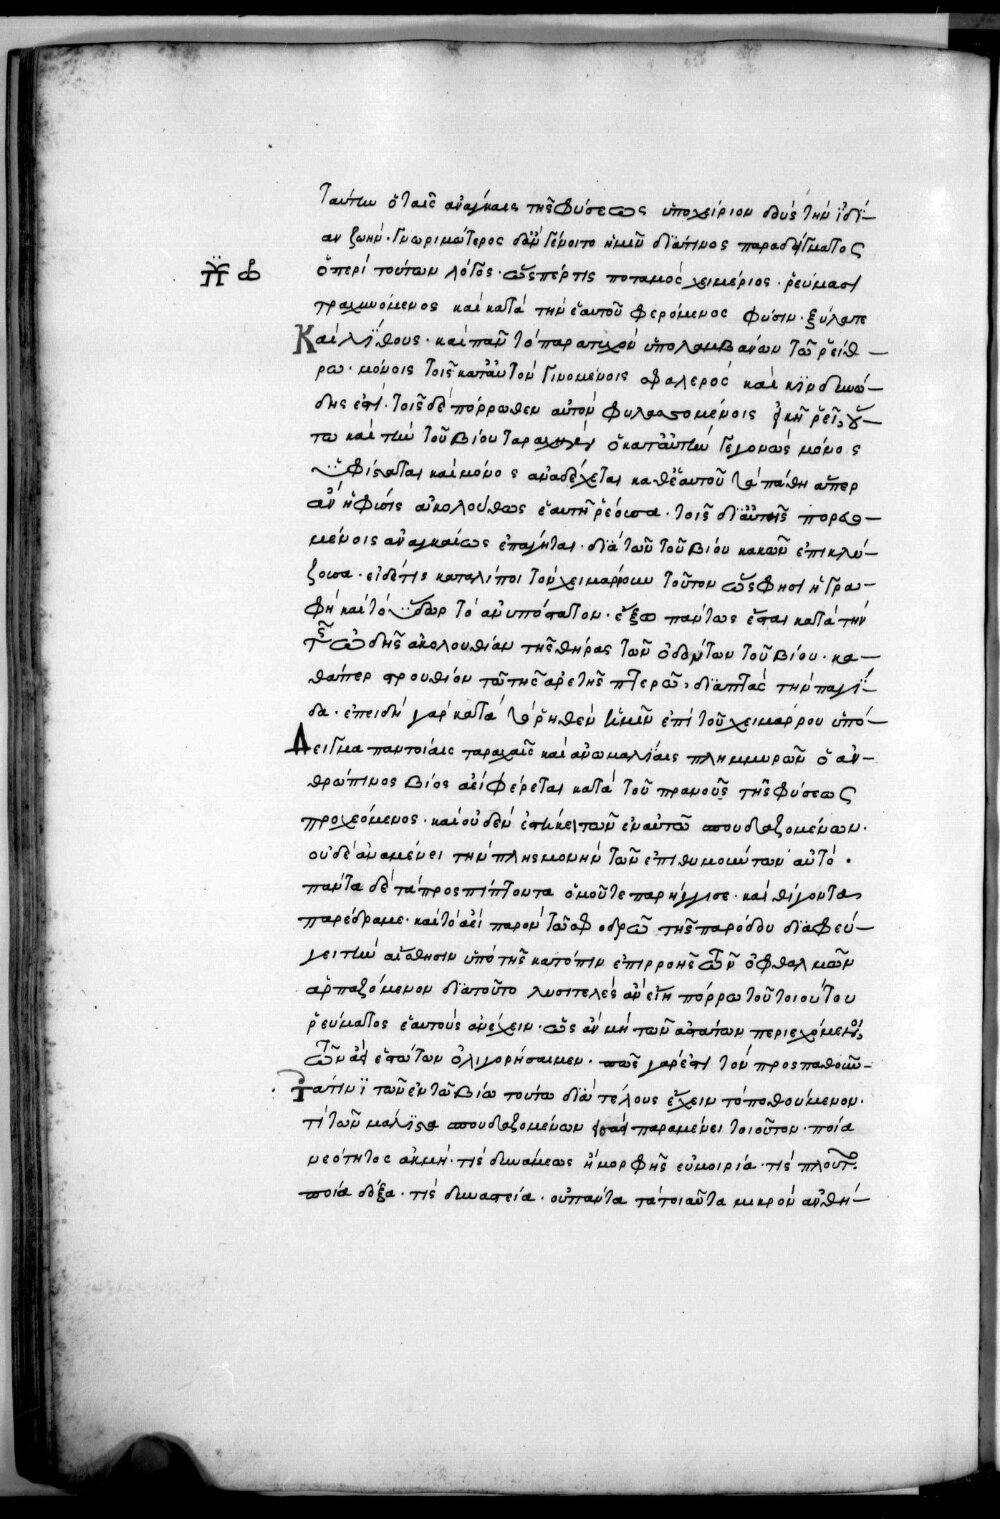 ταύτην ὁ ταῖς ἀνάγκαις τῆς φύσεως ὑποχείριον δοὺς τὴν ἰδί–
αν ζωήν· γνωριμώτερος δ' ἂν γένοιτο ἡμῖν διά τινος παραδείγματος
ὁ περὶ τούτων λόγος· ὥσπερ τις ποταμὸς χειμέριος· ῥεύμασι
τραχυνόμενος καὶ κατὰ τὴν ἑαυτοῦ φερόμενος φύσιν· ξύλα τε
Καὶ λίθους· καὶ πᾶν τὸ παρατυχὸν ὑπολαμβάνων τῶ ῥείθ–
ρω· μόνοις τοῖς κατ' αὐτὸν γινομένοις σφαλερὸς καὶ κινδυνώ–
δης ἐστί· τοῖς δὲ πόρρωθεν αὐτὸν φυλασσομένοις εἰκῆ ῥεῖ, οὕ–
τω καὶ τὴν τοῦ βίου ταραχὴν ὁ κατ' αὐτὴν γεγονὼς μόνος
ὑφίσταται καὶ μόνος ἀναδέχεται καθ' ἑαυτοῦ τὰ πάθη ἅπερ
ἂν ἡ φύσις ἀκολούθως ἑαυτῆ ῥέουσα· τοῖς δι' αὐτῆς πορευο–
μένοις ἀναγκαίως ἐπάγηται· διὰ τῶν τοῦ βίου κακῶν ἐπικλύ–
ζουσα· εἰ δέ τις καταλίποι τὸν χειμάρρουν τοῦτον ὥς φησι ἡ γρα–
φὴ καὶ τὸ ὕδωρ τὸ ἀνυπόστατον· ἔξω πάντως ἔσται κατὰ τὴν
τῆς ὠδῆς ἀκολουθίαν τῆς θήρας τῶν ὀδόντων τοῦ βίου· κα–
θάπερ στρουθίον τῶ τῆς ἀρετῆς πτερῶ, διαπτὰς τὴν παγί–
δα· ἐπειδὴ γὰρ κατὰ τὸ ῥηθὲν ἡμῖν ἐπὶ τοῦ χειμάρρου ὑπό–
Δειγμα παντοίαις ταραχαῖς καὶ ἀνωμαλίαις πλημμυρῶν ὁ ἀν–
θρώπινος βίος ἀεὶ φέρεται κατὰ τοῦ πρανοῦς τῆς φύσεως
προχεόμενος· καὶ οὐδὲν ἕστηκε τῶν ἐν αὐτῶ σπουδαζομένων·
οὐδὲ ἀναμένει τὴν πλησμονὴν τῶν ἐπιθυμούντων αὐτό·
πάντα δὲ τὰ προσπίπτοντα ὁμοῦ τε παρήγγισε· καὶ θίγοντα
παρέδραμε· καὶ τὸ ἀεὶ παρὸν τῶ σφοδρῶ τῆς παρόδου διαφεύ–
γει τὴν αἴσθησιν ὑπὸ τῆς κατόπιν ἐπιρροῆς τῶν ὀφθαλμῶν
ἁρπαζόμενον διὰ τοῦτο λυσιτελὲς ἂν εἴη πόρρω τοῦ τοιούτου
ῥεύματος ἑαυτοὺς ἀνέχειν· ὡς ἂν μὴ τῶν ἀστάτων περιεχόμενοι,
τῶν ἀεὶ ἑστώτων ὀλιγορήσαιμεν· πῶς γάρ ἐστι τὸν προσπαθοῦν–
τα τινὶ τῶν ἐν τῶ βίω τούτω διὰ τέλους ἔχειν τὸ ποθούμενον·
τί τῶν μάλιστα σπουδαζομένων παραμένει τοιοῦτον· ποία
νεότητος ἀκμή· τίς δυνάμεως ἢ μορφῆς εὐμοιρία· τίς πλοῦτος·
ποία δόξα· τίς δυναστεία· οὐ πάντα τὰ τοιαῦτα μικρὸν ἀνθή–